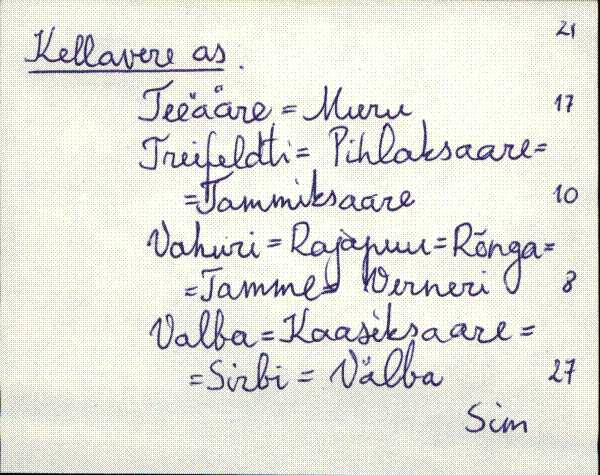 21
Kellavere as.
Teeääre = Muru 17
Treifeldti = Pihlaksaare =
= Tammiksaare 10
Vahuri = Rajapuu = Rõnga =
= Tamme = Verneri 8
Valba = Kaasiksaare =
= Sirbi = Välba 27
Sim